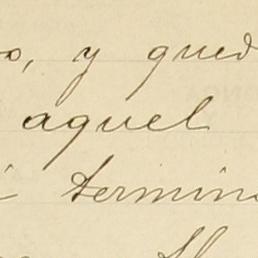 y qued
aquel
termin